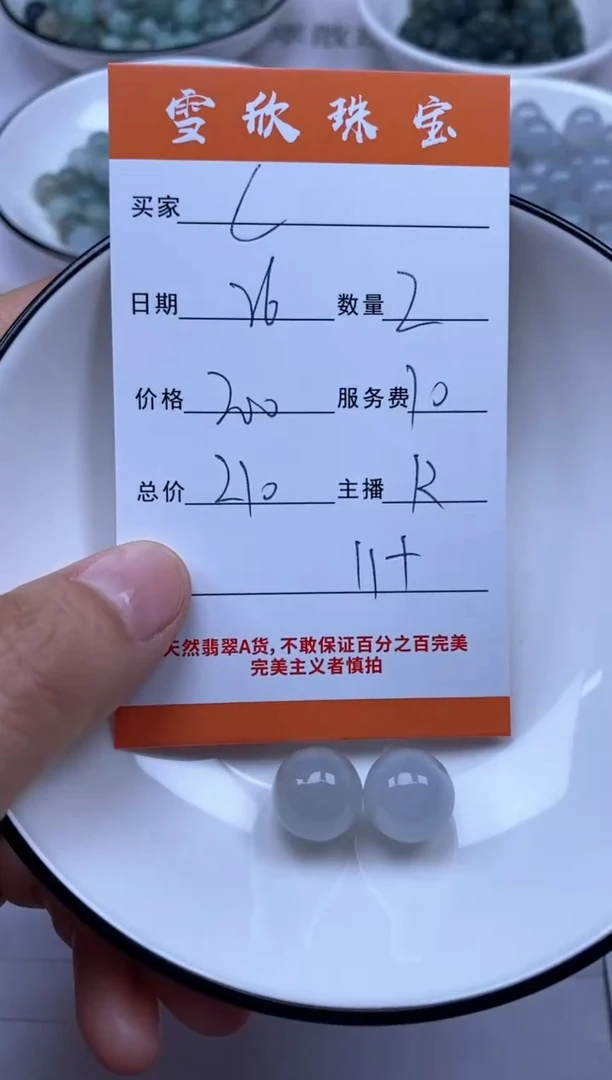 雪欣珠宝
买家 L
日期 26 数量 2
价格 200 服务费 10
总价 210 主播 R
11+
天然翡翠A货,不敢保证百分之百完美
完美主义者慎拍